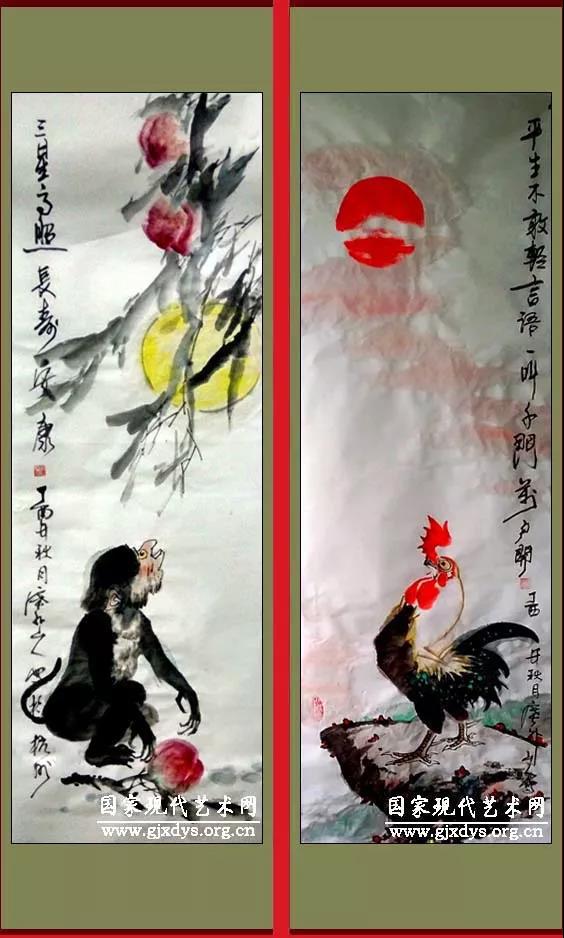 三星高照 長寿安康
丁酉年秋月
国家现代艺术网
www.gjxdys.org.cn
平生不敢輕言語一叫千門萬户開
丁酉年秋月
国家现代艺术网
www.gjxdys.org.cn